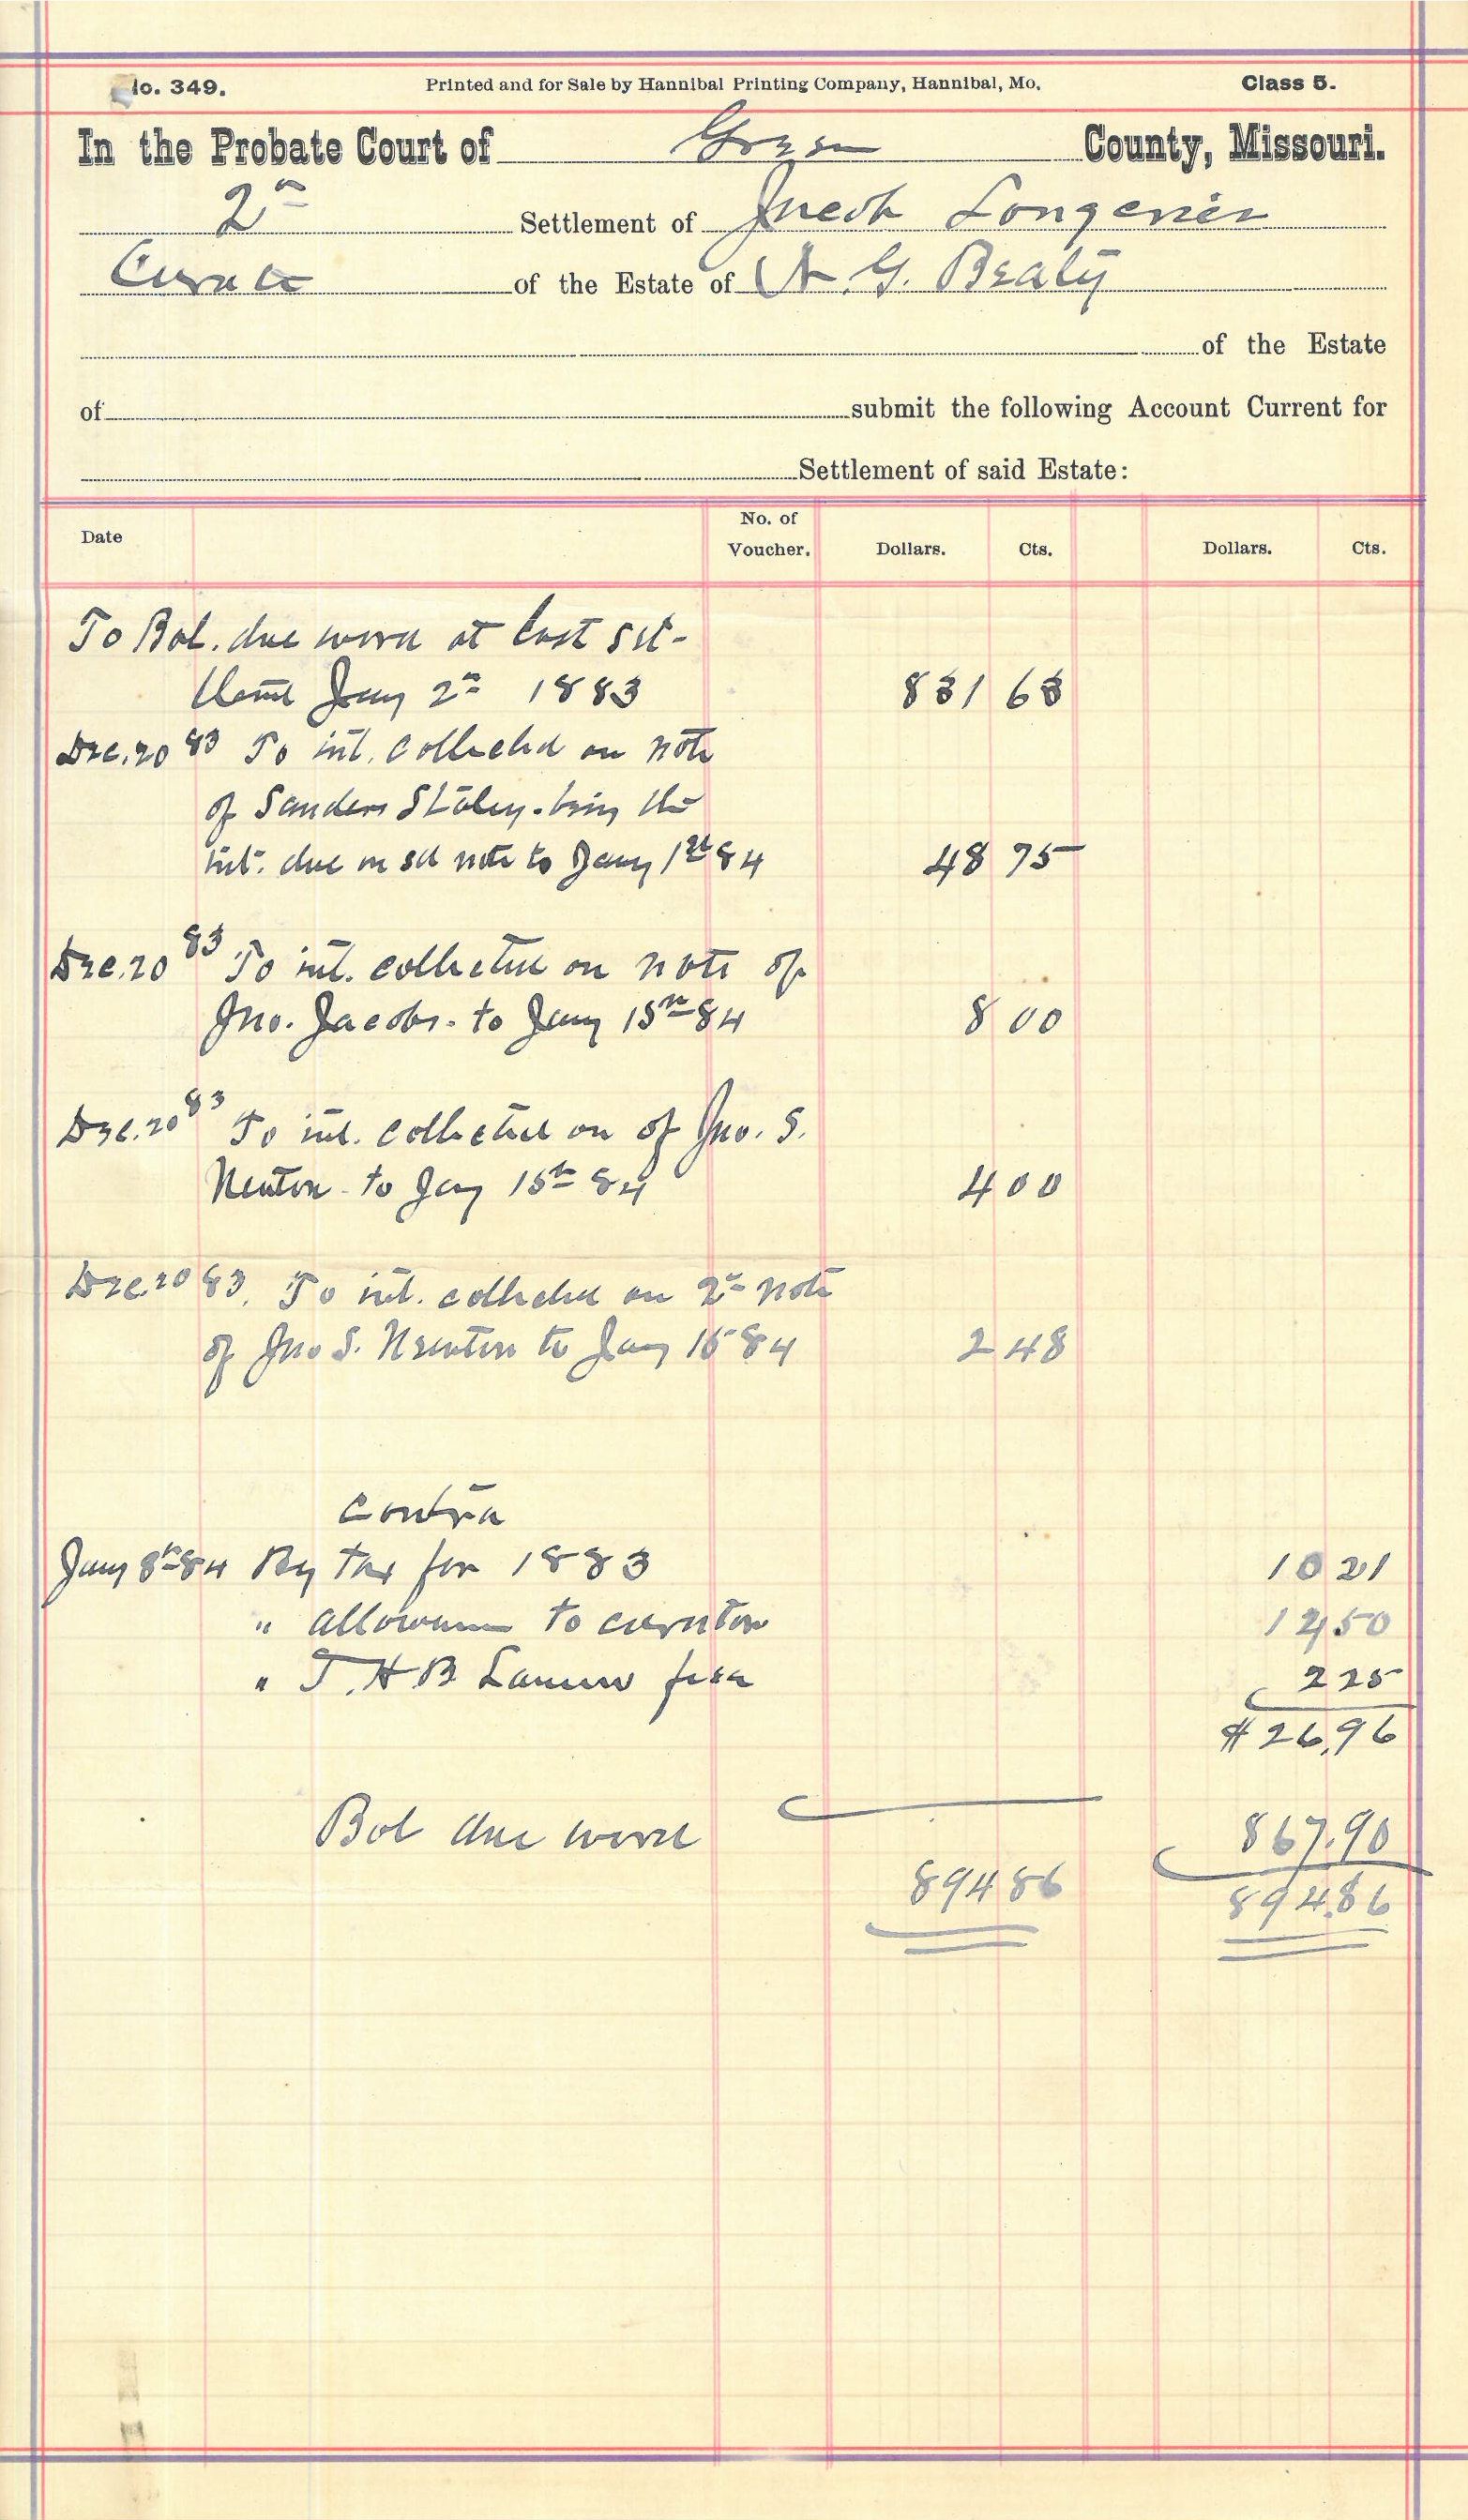 No. 349. Printed and for Sale by Hannibal Printing Company, Hannibal, Mo. Class 5.
In the Probate Court of Green County, Missouri.
2n Settlement of Jacob Longenier
Curator of the Estate of N. G. Bealy
of the Estate
of submit the following Account Current for
Settlement of said Estate:
Date No. of Voucher. Dollars. Cts. Dollars. Cts.
To Bal. due ward at last set-
tlemt Jany 2n 1883 831 63
Dec. 20 83 To int. collected on note
of Sanders Staley. being the
int. due on sd note to Jany 1st 84 48 75
Dec. 20 83 To int. collected on note of
Jno. Jacobs. to Jany 15th 84 8 00
Dec. 20 83 To int. collected on of Jno. S.
Newton to Jany 15th 84 4 00
Dec. 20 83. To int. collected on 2n note
of Jno S. Newton to Jany 15 84 2 48
Contra
Jany 8th 84 By tax for 1883 10 21
" allowance to curator 12 50
" T. H. B Lawrence fees 2 25
$26.96
Bal due ward 867.90
894 86 894.86